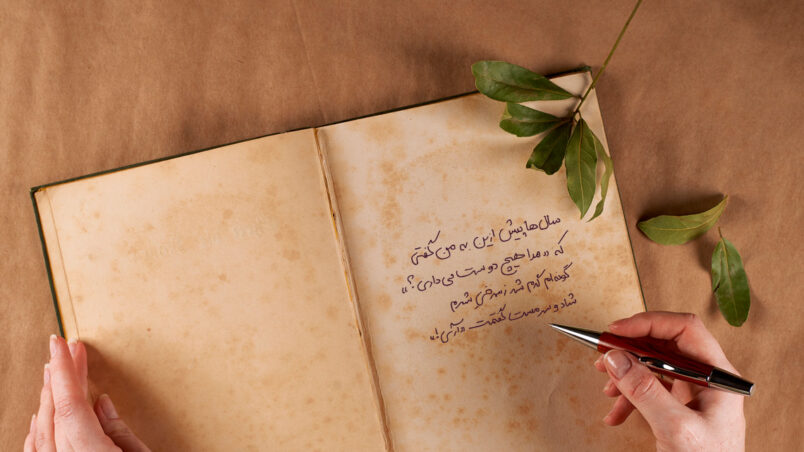 سال‌ها پیش ازین به من گفتی
که «مرا هیچ دوست می‌داری؟»
گونه‌ام گرم شد ز سرخی شرم
شاد و سرمست گفتمت «آری!»